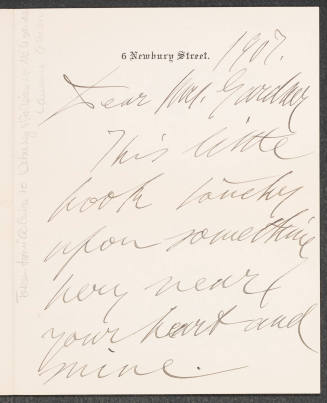 6 Newbury Street.
1907.
Dear Mrs. Gardner
This little
book touches
upon something
very near
your heart and
mine.